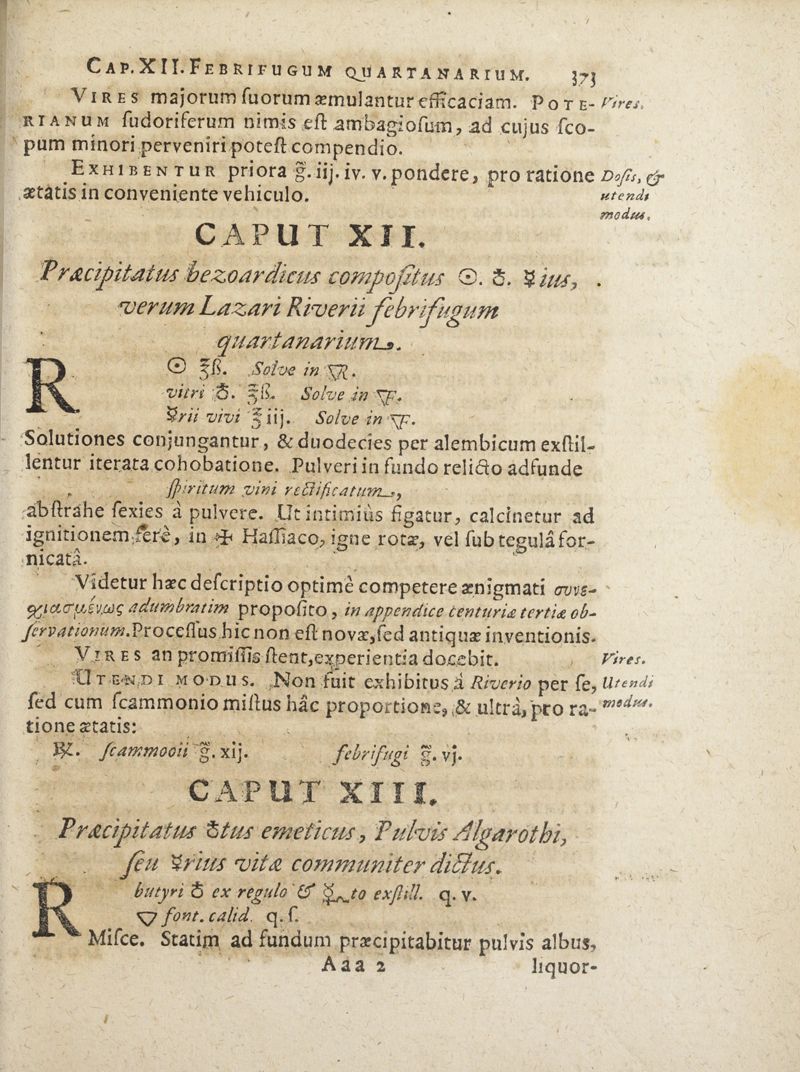 CAP. XII. FEBRIFUGUM QUARTANARIUM. 373
VIRES majorum ſuorum æmulantur efficaciam. POTE- Vires.
RIANUM ſudoriferum nimis eſt ambagioſum, ad cujus ſco-
pum minori perveniri poteſt compendio.
EXHIBENTUR priora g. iij. iv. v. pondere, pro ratione Doſis, &
ætatis in conveniente vehiculo. utendi
modus.
CAPUT XII.
Præcipitatus bezoardicus compoſitus ☉. ♁. ☿ius,
verum Lazari Riverii febrifugum
quartanarium.
R ☉ ʒß. Solve in 🜆.
vitri ♁. ʒß. Solve in 🜅.
☿rii vivi ʒiij. Solve in 🜅.
Solutiones conjungantur, & duodecies per alembicum exſtil-
lentur iterata cohobatione. Pulveri in fundo relicto adfunde
ſpiritum vini rectificatum,
abſtrahe ſexies à pulvere. Ut intimiùs figatur, calcinetur ad
ignitionem ferè, in 🜊 Haſſiaco, igne rotæ, vel ſub tegulâ for-
nicatâ.
Videtur hæc deſcriptio optimè competere ænigmati συνε-
σκιασμένως adumbratim propoſito, in appendice centuriæ tertiæ ob-
ſervationum. Proceſſus hic non eſt novæ, ſed antiquæ inventionis.
VIRES an promiſſis ſtent, experientia docebit. Vires.
UTENDI MODUS. Non fuit exhibitus à Riverio per ſe, Utendi
ſed cum ſcammonio miſtus hâc proportione, & ultrà, pro ra- modus.
tione ætatis:
℞. ſcammonii g. xij. febrifugi g. vj.
CAPUT XIII.
Præcipitatus ♁tus emeticus, Pulvis Algarothi,
ſeu ☿rius vitæ communiter dictus.
R butyri ♁ ex regulo & ☿to exſtill. q. v.
🜄 font. calid. q. ſ.
Miſce. Statim ad fundum præcipitabitur pulvis albus,
Aaa 2 liquor-